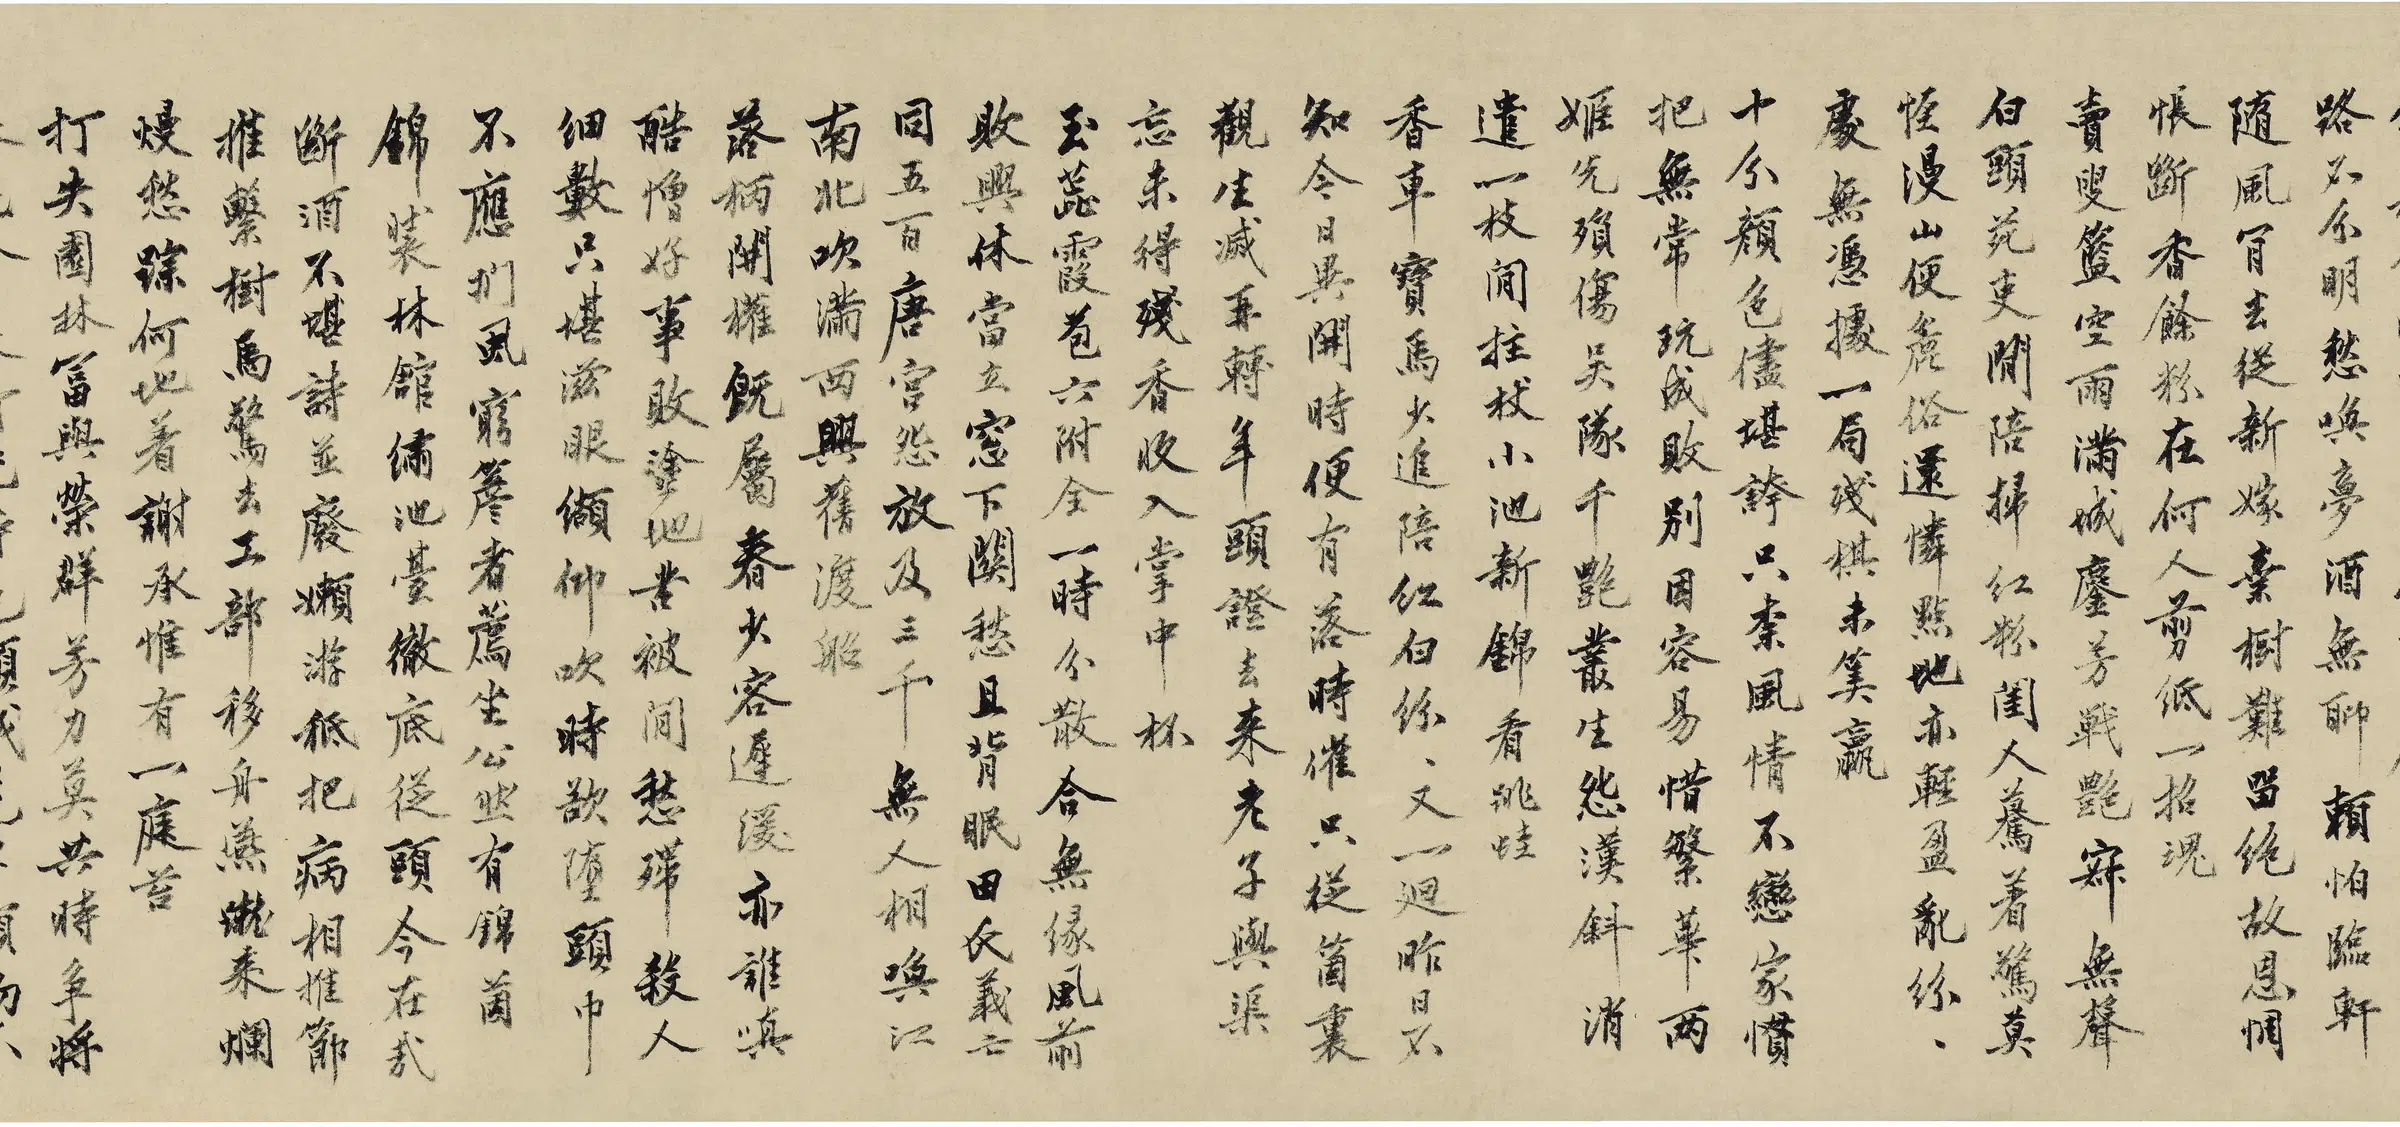 路不分明愁喚夢酒無聊賴怕臨軒
随風冐去從新嫁棄樹難留絶故恩惆
悵斷香餘粉在何人剪紙一招魂
賣叟籃空雨滿城鏖芳戰艷寂無聲
白頭苑吏閒陪掃紅粉閨人驀着驚莫
恠漫山便麁俗還憐點地亦輕盈亂紛、
處無憑據一局殘棋未筭贏
十分顏色儘堪誇只柰風情不戀家慣
把無常玩成敗別因容易惜繁華兩
姬先殞傷吴隊千艷叢生怨漢斜消
遣一枝閒拄杖小池新錦看跳蛙
香車寶馬少追陪紅白紛、又一廻昨日不
知今日異開時便有落時催只從箇裏
觀生滅再轉年頭證去來老子與渠
忘未得殘香收入掌中杯
玉蕊霞苞六附全一時分散合無緣風前
敗興休當立窓下關愁且背眠田氏義亡
同五百唐宫怨放及三千無人相喚江
南北吹滿西興舊渡船
蒂柄開權既屬春少容遲緩亦誰嗔
酷憎好事敗塗地苦被閒愁殢殺人
細數只堪滋眼纈仰吹時欲墮頭巾
不應捫虱窮簷者薦坐公然有錦茵
錦裝林館繡池臺徹底從頭今在哉
斷酒不堪詩並廢嬾游秪把病相推節
推繫樹馬驚去工部移舟燕蹴來爛
熳愁踪何地着謝承惟有一庭苔
打失園林冨與榮群芳力莫共時爭將